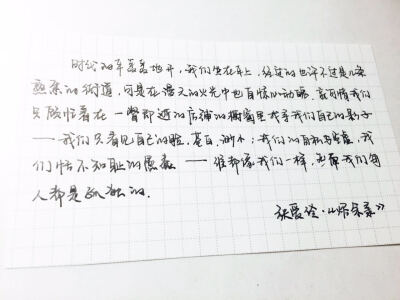 时代的车轰轰地开，我们坐在车上，经过的也许不过是几条
熟悉的街道，可是在漫天的火光中也自惊心动魄。就可惜我们
只顾忙着在一瞥即逝的店铺的橱窗里找寻我们自己的影子
——我们只看见自己的脸，苍白，渺小；我们的自私与空虚，我
们恬不知耻的愚蠢——谁都像我们一样，然而我们每
人都是孤独的.
张爱玲·《烬余录》